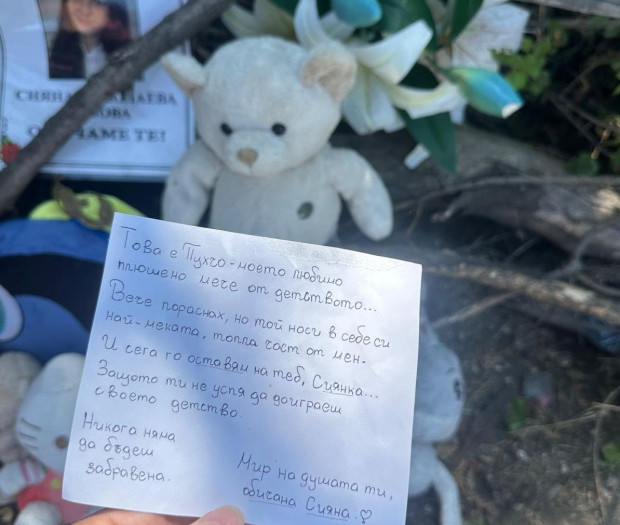 СИЯНА
ТЕ!
Това е Пухчо - моето любимо
плюшено мече от детството...
Вече пораснах, но той носи в себе си
най-меката, топла част от мен.
И сега го оставям на теб, Сиянка...
Защото ти не успя да доиграеш
своето детство.
Никога няма
да бъдеш
забравена.
Мир на душата ти,
обичана Сияна.♡